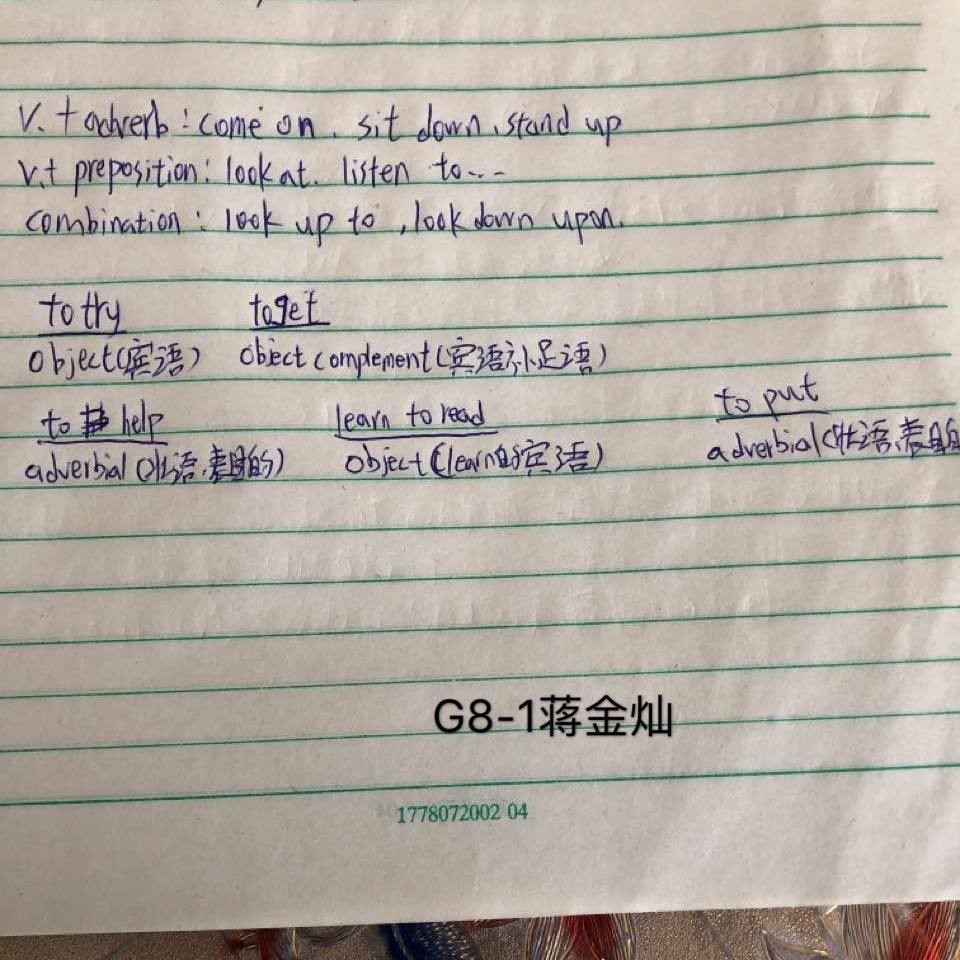 V. + adverb : come on, sit down, stand up
V. + preposition : look at, listen to...
combination : look up to , look down upon.
to try to get
object (宾语) object complement (宾语补足语)
to help learn to read to put
adverbial (状语,表目的) object (learn的宾语) adverbial (状语,表目的
G8-1蒋金灿
1778072002 04